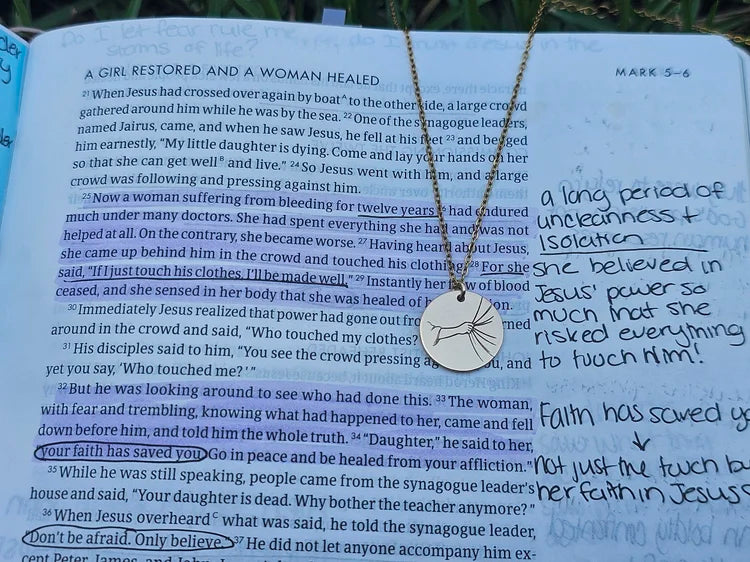 Do I let fear rule me
storms of life?
A GIRL RESTORED AND A WOMAN HEALED
MARK 5–6
21 When Jesus had crossed over again by boat^ to the other side, a large crowd
gathered around him while he was by the sea. 22 One of the synagogue leaders,
named Jairus, came, and when he saw Jesus, he fell at his feet 23 and begged
him earnestly, "My little daughter is dying. Come and lay your hands on her
so that she can get well B and live." 24 So Jesus went with him, and a large
crowd was following and pressing against him.
25 Now a woman suffering from bleeding for twelve years had endured
much under many doctors. She had spent everything she had and was not
helped at all. On the contrary, she became worse. 27 Having heard about Jesus,
she came up behind him in the crowd and touched his clothing. 28 For she
said, "If I just touch his clothes, I'll be made well." 29 Instantly her flow of blood
ceased, and she sensed in her body that she was healed of
30 Immediately Jesus realized that power had gone out
around in the crowd and said, "Who touched my clothes?
31 His disciples said to him, "You see the crowd pressing and
yet you say, 'Who touched me?'"
32 But he was looking around to see who had done this. 33 The woman,
with fear and trembling, knowing what had happened to her, came and fell
down before him, and told him the whole truth. 34 "Daughter," he said to her,
"your faith has saved you. Go in peace and be healed from your affliction."
35 While he was still speaking, people came from the synagogue leader's
house and said, "Your daughter is dead. Why bother the teacher anymore?"
36 When Jesus overheard C what was said, he told the synagogue leader,
"Don't be afraid. Only believe." 37 He did not let anyone accompany him ex-
cept Peter, James, and John,
a long period of
uncleanness +
Isolation
she believed in
Jesus' power so
much that she
risked everything
to touch Him!
Faith has saved
↓
not just the touch
her faith in Jesus